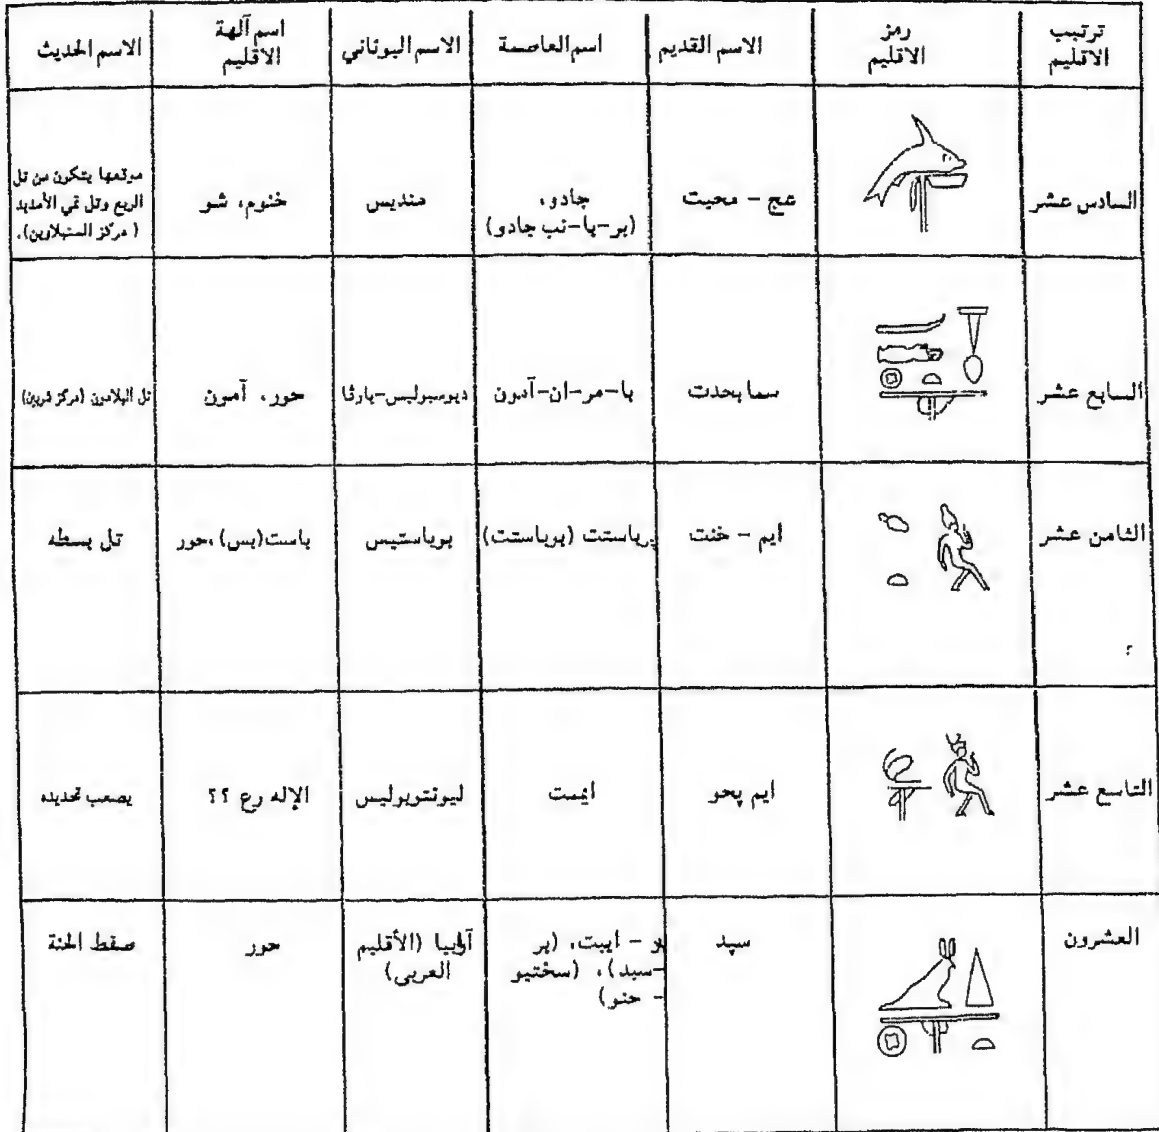 ترتيب الاقليم
رمز الاقليم
الاسم القديم
اسم العاصمة
الاسم اليوناني
اسم آلهة الاقليم
الاسم الحديث
السادس عشر
عج - محيت
جادو،
(بر-يا-نب جادو)
منديس
خنوم، شو
موقعها يتكون من تل
الربع وتل تمي الأمديد
( مركز السنبلاوين).
السابع عشر
سما بحدت
يا-مر-ان-آمون
ديوسبوليس-بارثا
حور، آمون
تل البلامون (مركز شربين)
الثامن عشر
ايم - خنت
برباستت (بوباستت)
بوباستيس
باست(بس)،حور
تل بسطه
التاسع عشر
ايم پحو
ايمت
ليونتوبوليس
الإله رع ؟؟
يصعب تحديده
العشرون
سپد
- ايبت، (بر
-سبد)، (سختيو
- حنو)
آرابيا (الأقليم
العربى)
حور
صفط الحنة